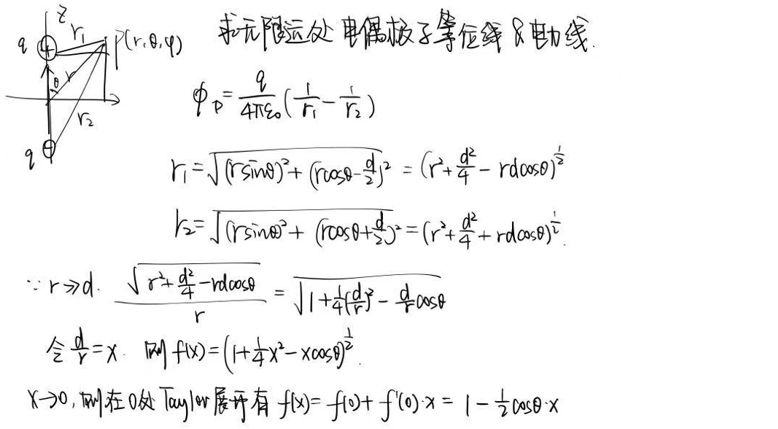 求无限远处电偶极子等位线&电力线.
z
q
r₁
P(r,θ,φ)
θ
r
r₂
q
φ_P = q/(4πε₀) (1/r₁ - 1/r₂)
r₁ = √((rsinθ)² + (rcosθ - d/2)²) = (r² + d²/4 - rdcosθ)^(1/2)
r₂ = √((rsinθ)² + (rcosθ + d/2)²) = (r² + d²/4 + rdcosθ)^(1/2).
∵ r≫d. √(r² + d²/4 - rdcosθ)/r = √(1 + 1/4(d/r)² - d/r cosθ)
令 d/r = x. 则 f(x) = (1 + 1/4x² - xcosθ)^(1/2).
x→0, 则在0处Taylor展开有 f(x) = f(0) + f'(0)·x = 1 - 1/2cosθ·x